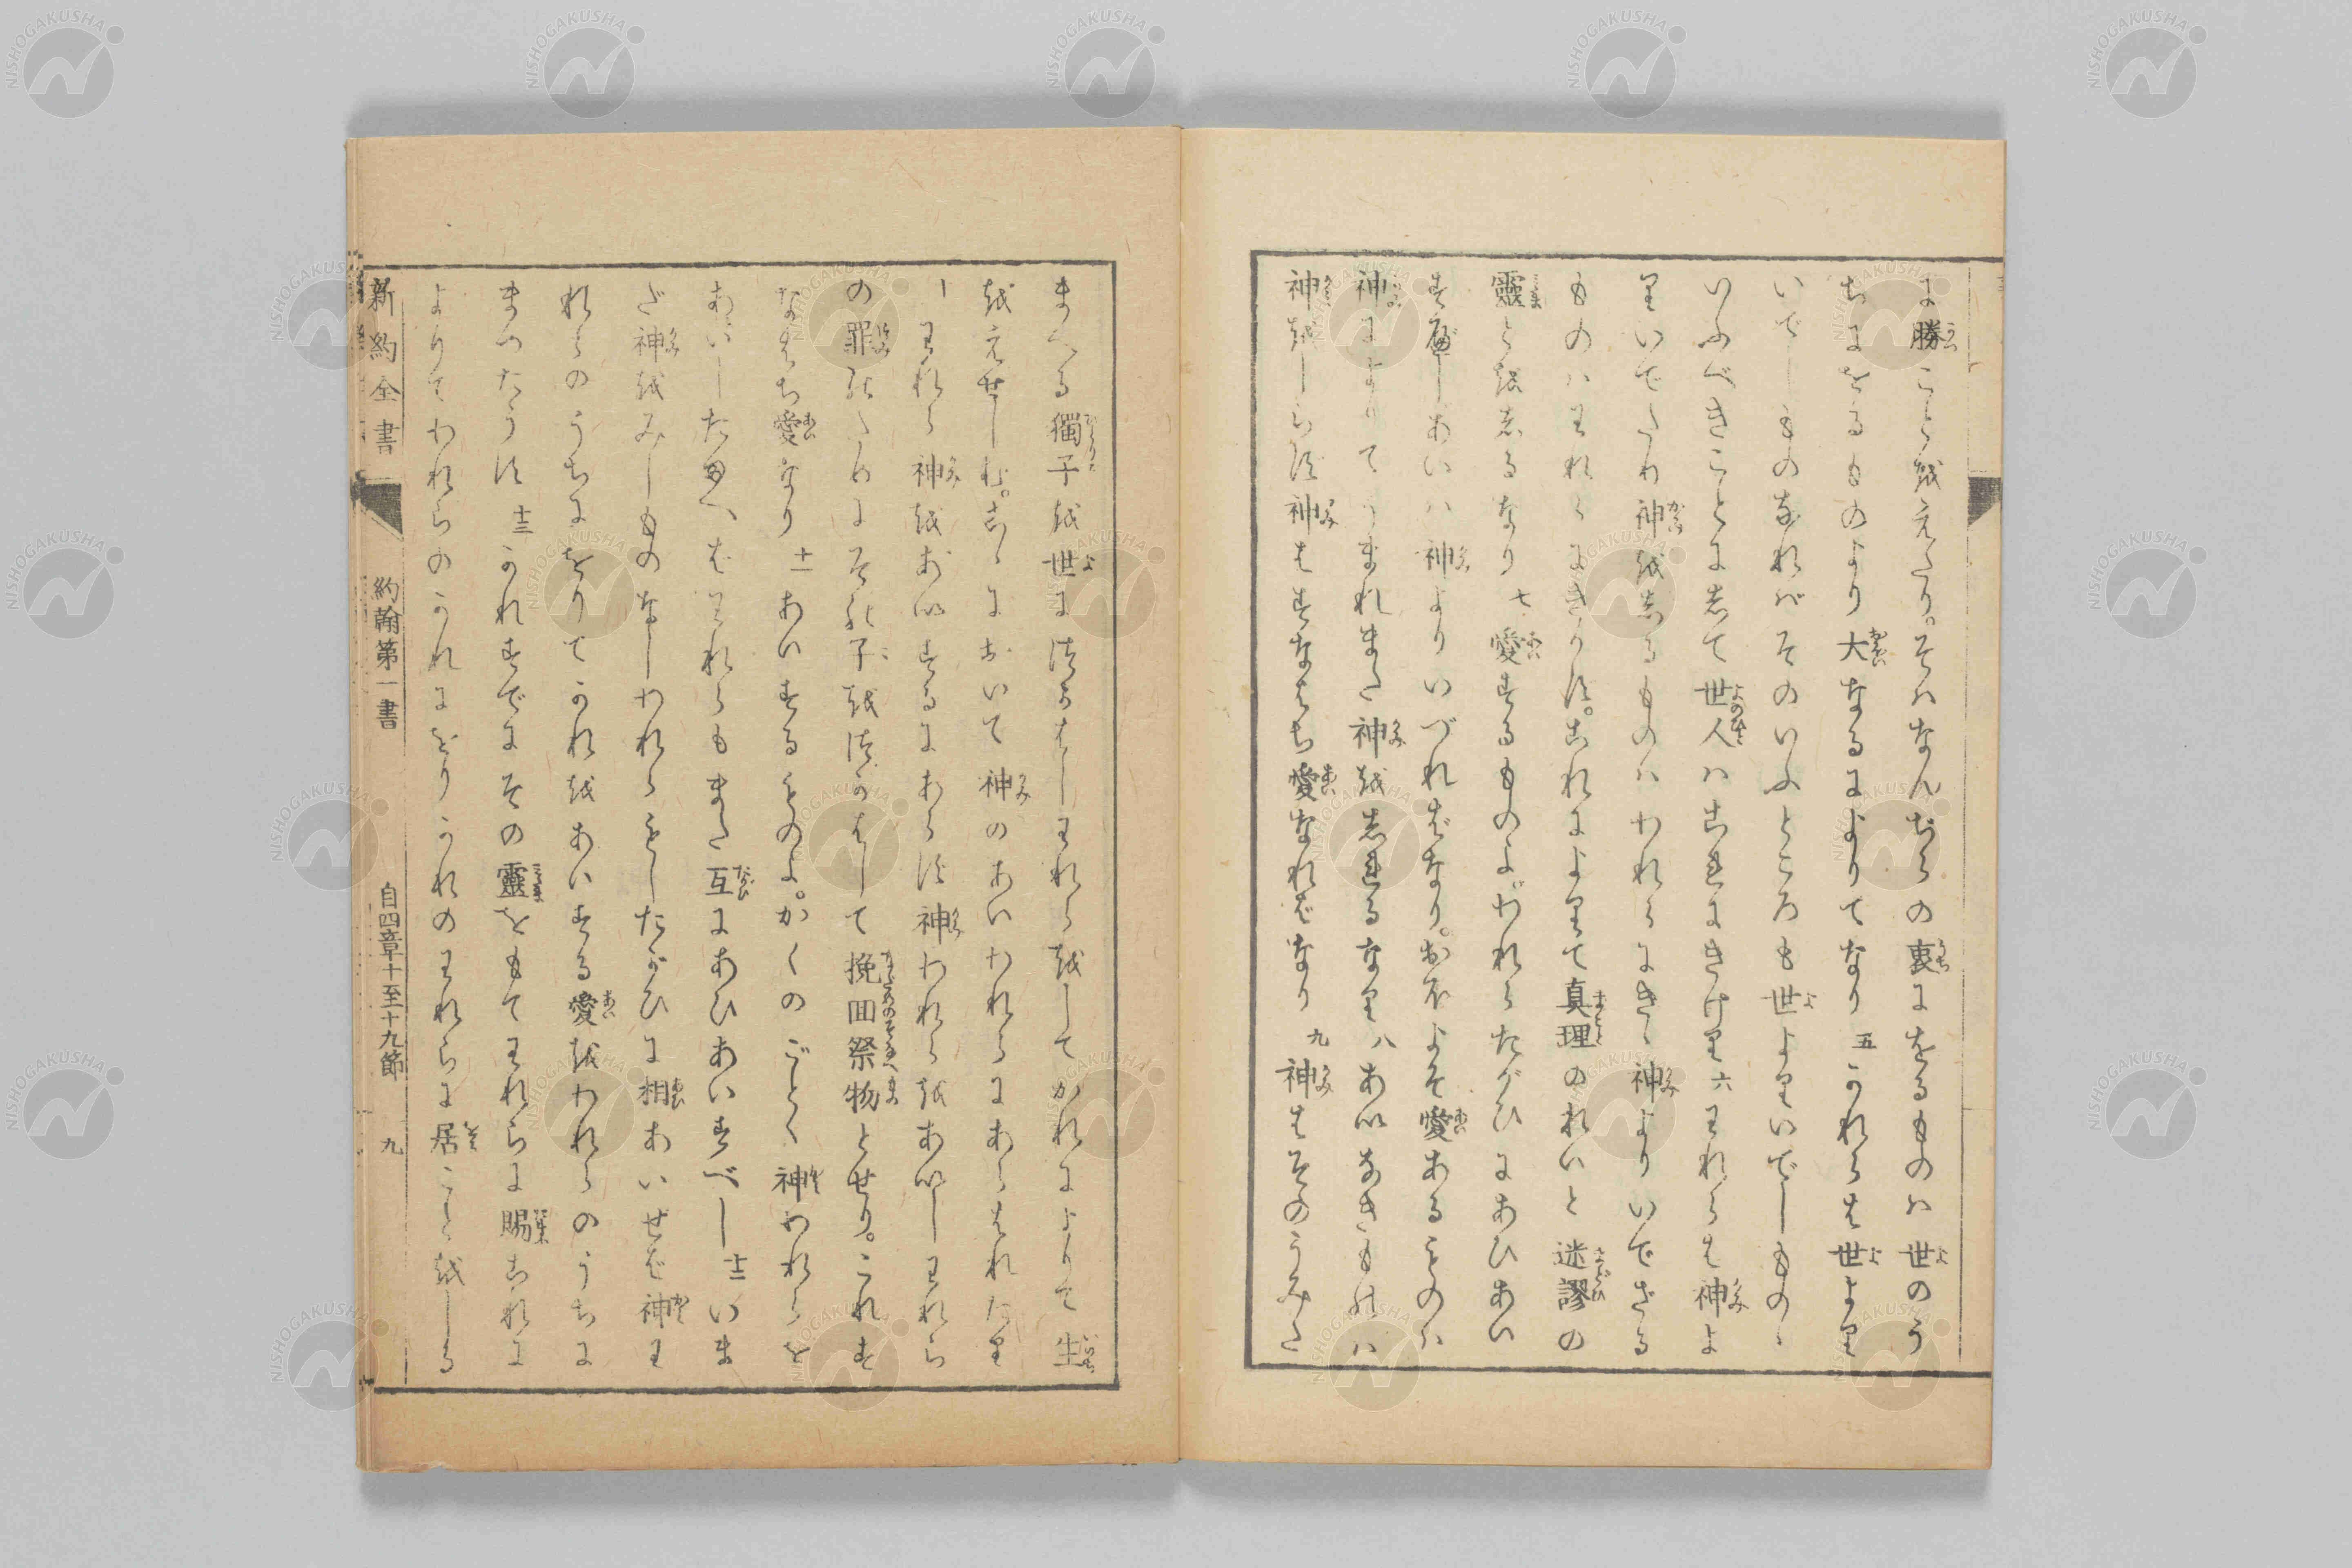 に勝こと越えたり。そハなんぢらの裏にをるものハ世のう
ちにをるものより大なるによりてなり 五 かれらは世より
いでしものなれバそのいふところも世よりいでしものゝ
いふべきことにして世人ハこれにきけり 六 われらは神よ
りいでたり神をしるものハわれらにきゝ神よりいでざる
ものハわれらにきかず。これによりて真理のれいと迷謬の
靈とをしるなり 七 愛するものよ。われらたがひにあひあい
すべしあいハ神よりいづればなり。おほよそ愛あるものハ
神によりてうまれまた神をしれるなり 八 あいなきものハ
神をしらず神はすなはち愛なればなり 九 神はそのうみた
まへる獨子を世につかはしわれらをしてかれによりて生
をえせしむ。こゝにおいて神のあいわれらにあらはれたり
十 われら神をあいするにあらず神われらをあいしわれら
の罪のためにその子をつかはして挽回祭物とせり。これす
なはち愛なり 十一 あいするものよ。かくのごとく神われらを
あいしたまへばわれらもまた互にあひあいすべし 十二 いま
だ神をみしものなしわれらもしたがひに相あいせば神わ
れらのうちにをりてかれをあいする愛をわれらのうちに
まつたうす 十三 かれすでにその靈をもてわれらに賜これに
よりてわれらのかれにをりかれのわれらに居ことをしる
新約全書 約翰第一書 自四章十至十九節 九
NISHOGAKUSHA